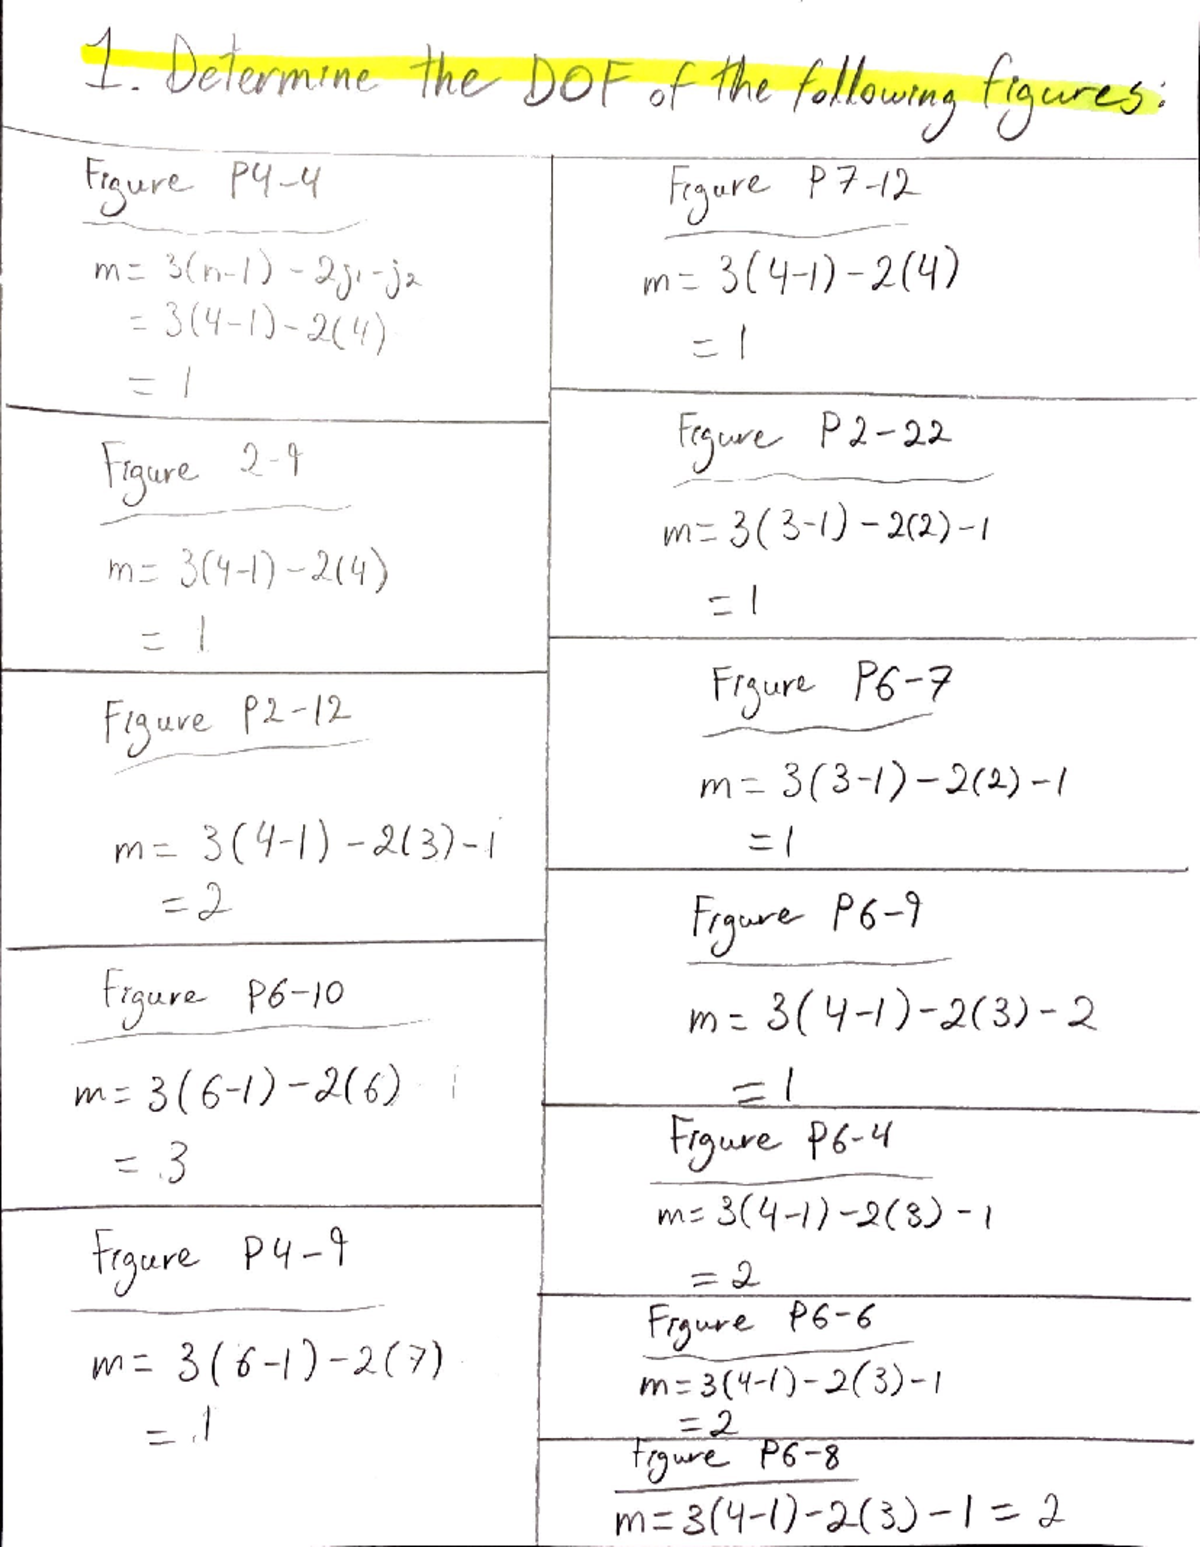 1. Determine the DOF of the following figures:
Figure P4-4
m= 3(n-1) - 2j1 - j2
= 3(4-1) - 2(4)
= 1
Figure 2-9
m= 3(4-1) - 2(4)
= 1
Figure P2-12
m= 3(4-1) - 2(3) - 1
= 2
Figure P6-10
m= 3(6-1) - 2(6)
= 3
Figure P4-9
m= 3(6-1) - 2(7)
= 1
Figure P7-12
m= 3(4-1) - 2(4)
= 1
Figure P2-22
m= 3(3-1) - 2(2) - 1
= 1
Figure P6-7
m= 3(3-1) - 2(2) - 1
= 1
Figure P6-9
m= 3(4-1) - 2(3) - 2
= 1
Figure P6-4
m= 3(4-1) - 2(3) - 1
= 2
Figure P6-6
m= 3(4-1) - 2(3) - 1
= 2
Figure P6-8
m= 3(4-1) - 2(3) - 1 = 2